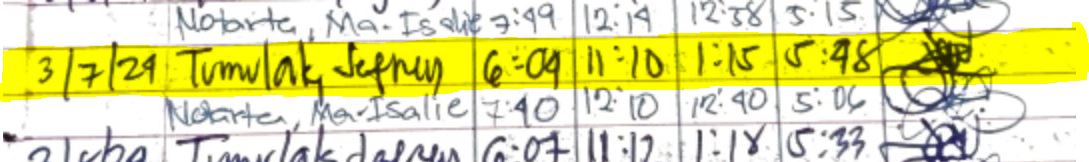 Notarte, Ma. Isalie 7:49 12:14 12:58 5:15
3/7/24 Tumulak, Jefrey 6:09 11:10 1:15 5:48
Notarte, Ma. Isalie 7:40 12:10 12:40 5:06
Tumulak 6:07 11:12 1:18 5:33